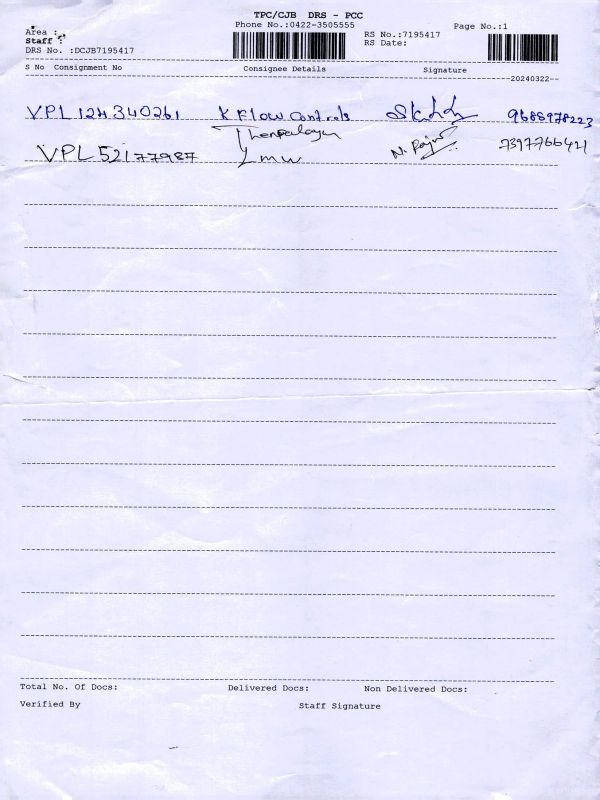 TPC/CJB DRS - PCC
Phone No.:0422-3505555
Page No.:1
Area :
Staff :
DRS No. :DCJB7195417
RS No.:7195417
RS Date:
S No Consignment No Consignee Details Signature
20240322--
VPL 124340261 K Flow Controls 9688978223
VPL 52177987 Lmw N. Raju 7397766421
Total No. Of Docs: Delivered Docs: Non Delivered Docs:
Verified By Staff Signature